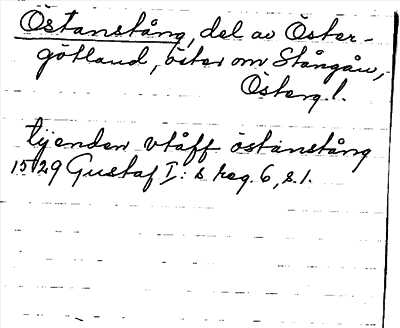 Östanstång, del av Öster-
götland, öster om Stångån,
Österg l.
tijenden vtåff östanstång
1529 Gustaf I: s reg. 6, s. 1.